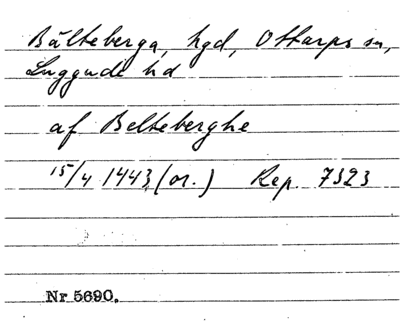 Bälteberga, hgd, Ottarps sn,
Luggude hd
af Belteberghe
15/4 1443 (or.) Rep. 7323
Nr 5690.